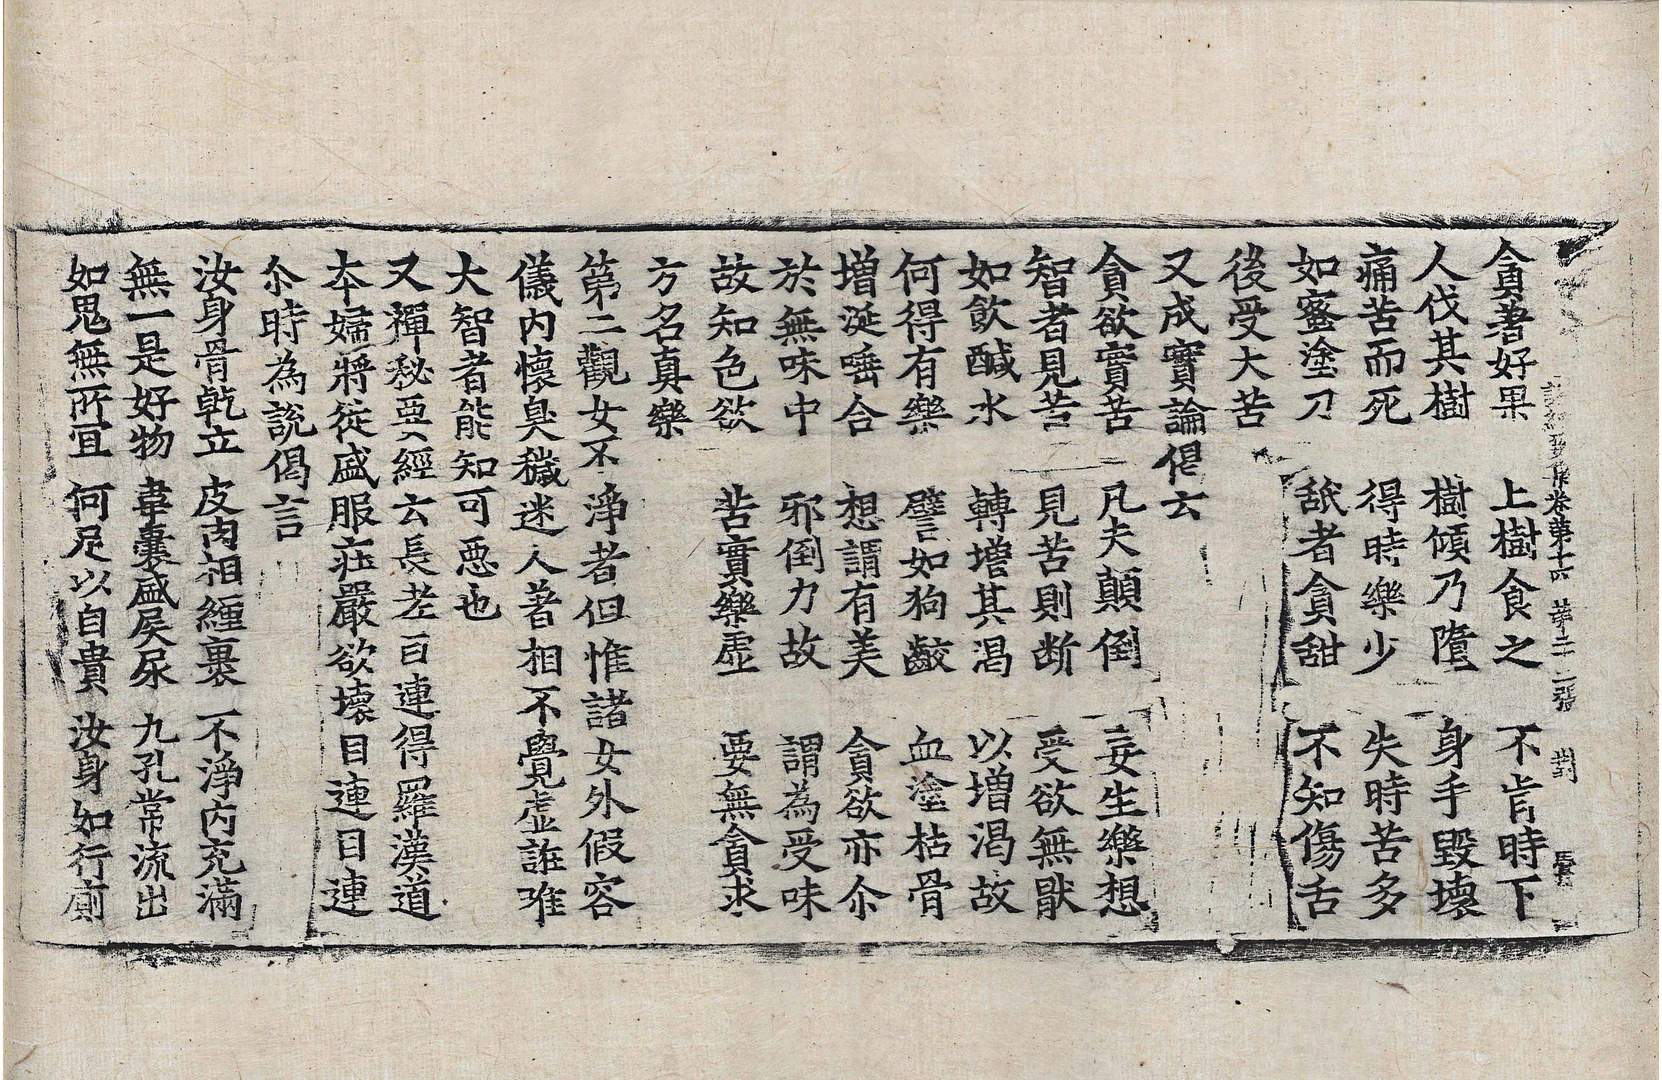 諸經要集卷第十四 第二十二張 對
貪著好果 上樹食之 不肯時下
人伐其樹 樹傾乃墮 身手毀壞
痛苦而死 得時樂少 失時苦多
如蜜塗刀 舐者貪甜 不知傷舌
後受大苦
又成實論偈云
貪欲實苦 凡夫顛倒 妄生樂想
智者見苦 見苦則断 受欲無猒
如飲醎水 轉增其渴 以增渴故
何得有樂 譬如狗齩 血塗枯骨
增涎唾合 想謂有美 貪欲亦尒
於無味中 邪倒力故 謂為受味
故知色欲 苦實樂虛 要無貪求
方名真樂
第二觀女不淨者但惟諸女外假容
儀内懷臭穢迷人著相不覺虛誑唯
大智者能知可惡也
又禪秘要經云長老目連得羅漢道
本婦將從盛服莊嚴欲壞目連目連
尒時為說偈言
汝身骨乾立 皮肉相纏裹 不淨内充滿
無一是好物 韋囊盛屎尿 九孔常流出
如鬼無所宜 何足以自貴 汝身如行廁